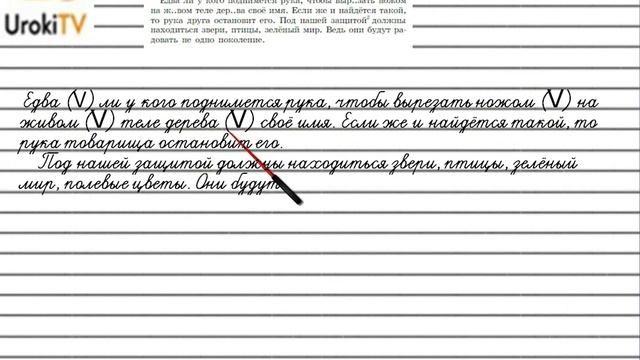 UrokiTV
Едва ли у кого поднимется рука, чтобы выр..зать ножом
на ж..вом теле дер..ва своё имя. Если же и найдётся такой,
то рука друга остановит его. Под нашей защитой² должны
находиться звери, птицы, зелёный мир. Ведь они будут ра-
довать не одно поколение.
Едва (V) ли у кого поднимется рука, чтобы вырезать ножом (V) на
живом (V) теле дерева (V) своё имя. Если же и найдётся такой, то
рука товарища остановит его.
Под нашей защитой должны находиться звери, птицы, зелёный
мир, полевые цветы. Они будут